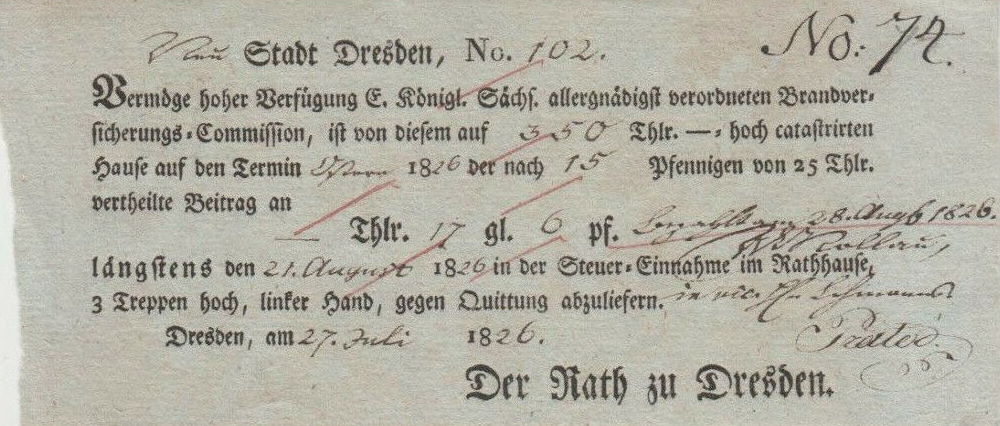 Neu Stadt Dresden, No. 102. No: 74.
Vermöge hoher Verfügung E. Königl. Sächs. allergnädigst verordneten Brandver-
sicherungs-Commission, ist von diesem auf 350 Thlr. —-- hoch catastrirten
Hause auf den Termin Ostern 1826 der nach 15 Pfennigen von 25 Thlr.
vertheilte Beitrag an
— Thlr. 17 gl. 6 pf. 28. Aug 1826.
längstens den 21. August 1826 in der Steuer-Einnahme im Rathhause,
3 Treppen hoch, linker Hand, gegen Quittung abzuliefern.
Dresden, am 27. Juli 1826.
Der Rath zu Dresden.